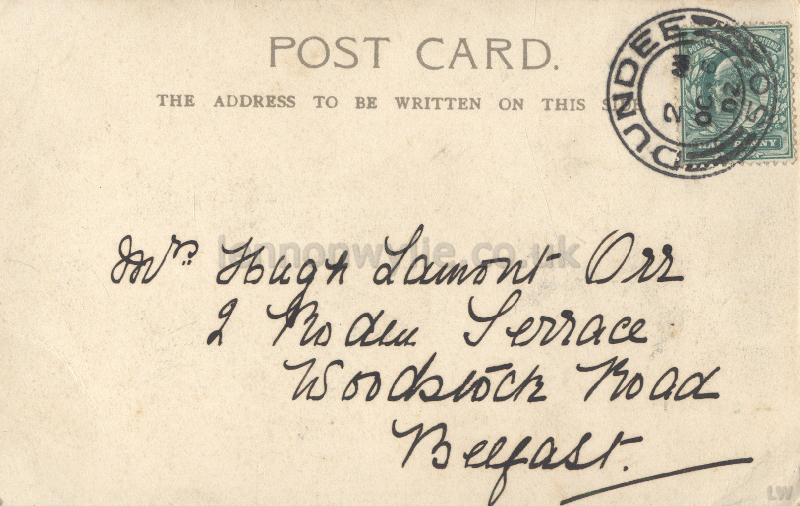 POST CARD.
THE ADDRESS TO BE WRITTEN ON THIS SIDE
DUNDEE
2
OC
02
HALFPENNY
lennonwylie.co.uk
Mrs. Hugh Lamont Orr
2 Roden Terrace
Woodstock Road
Belfast.
LW